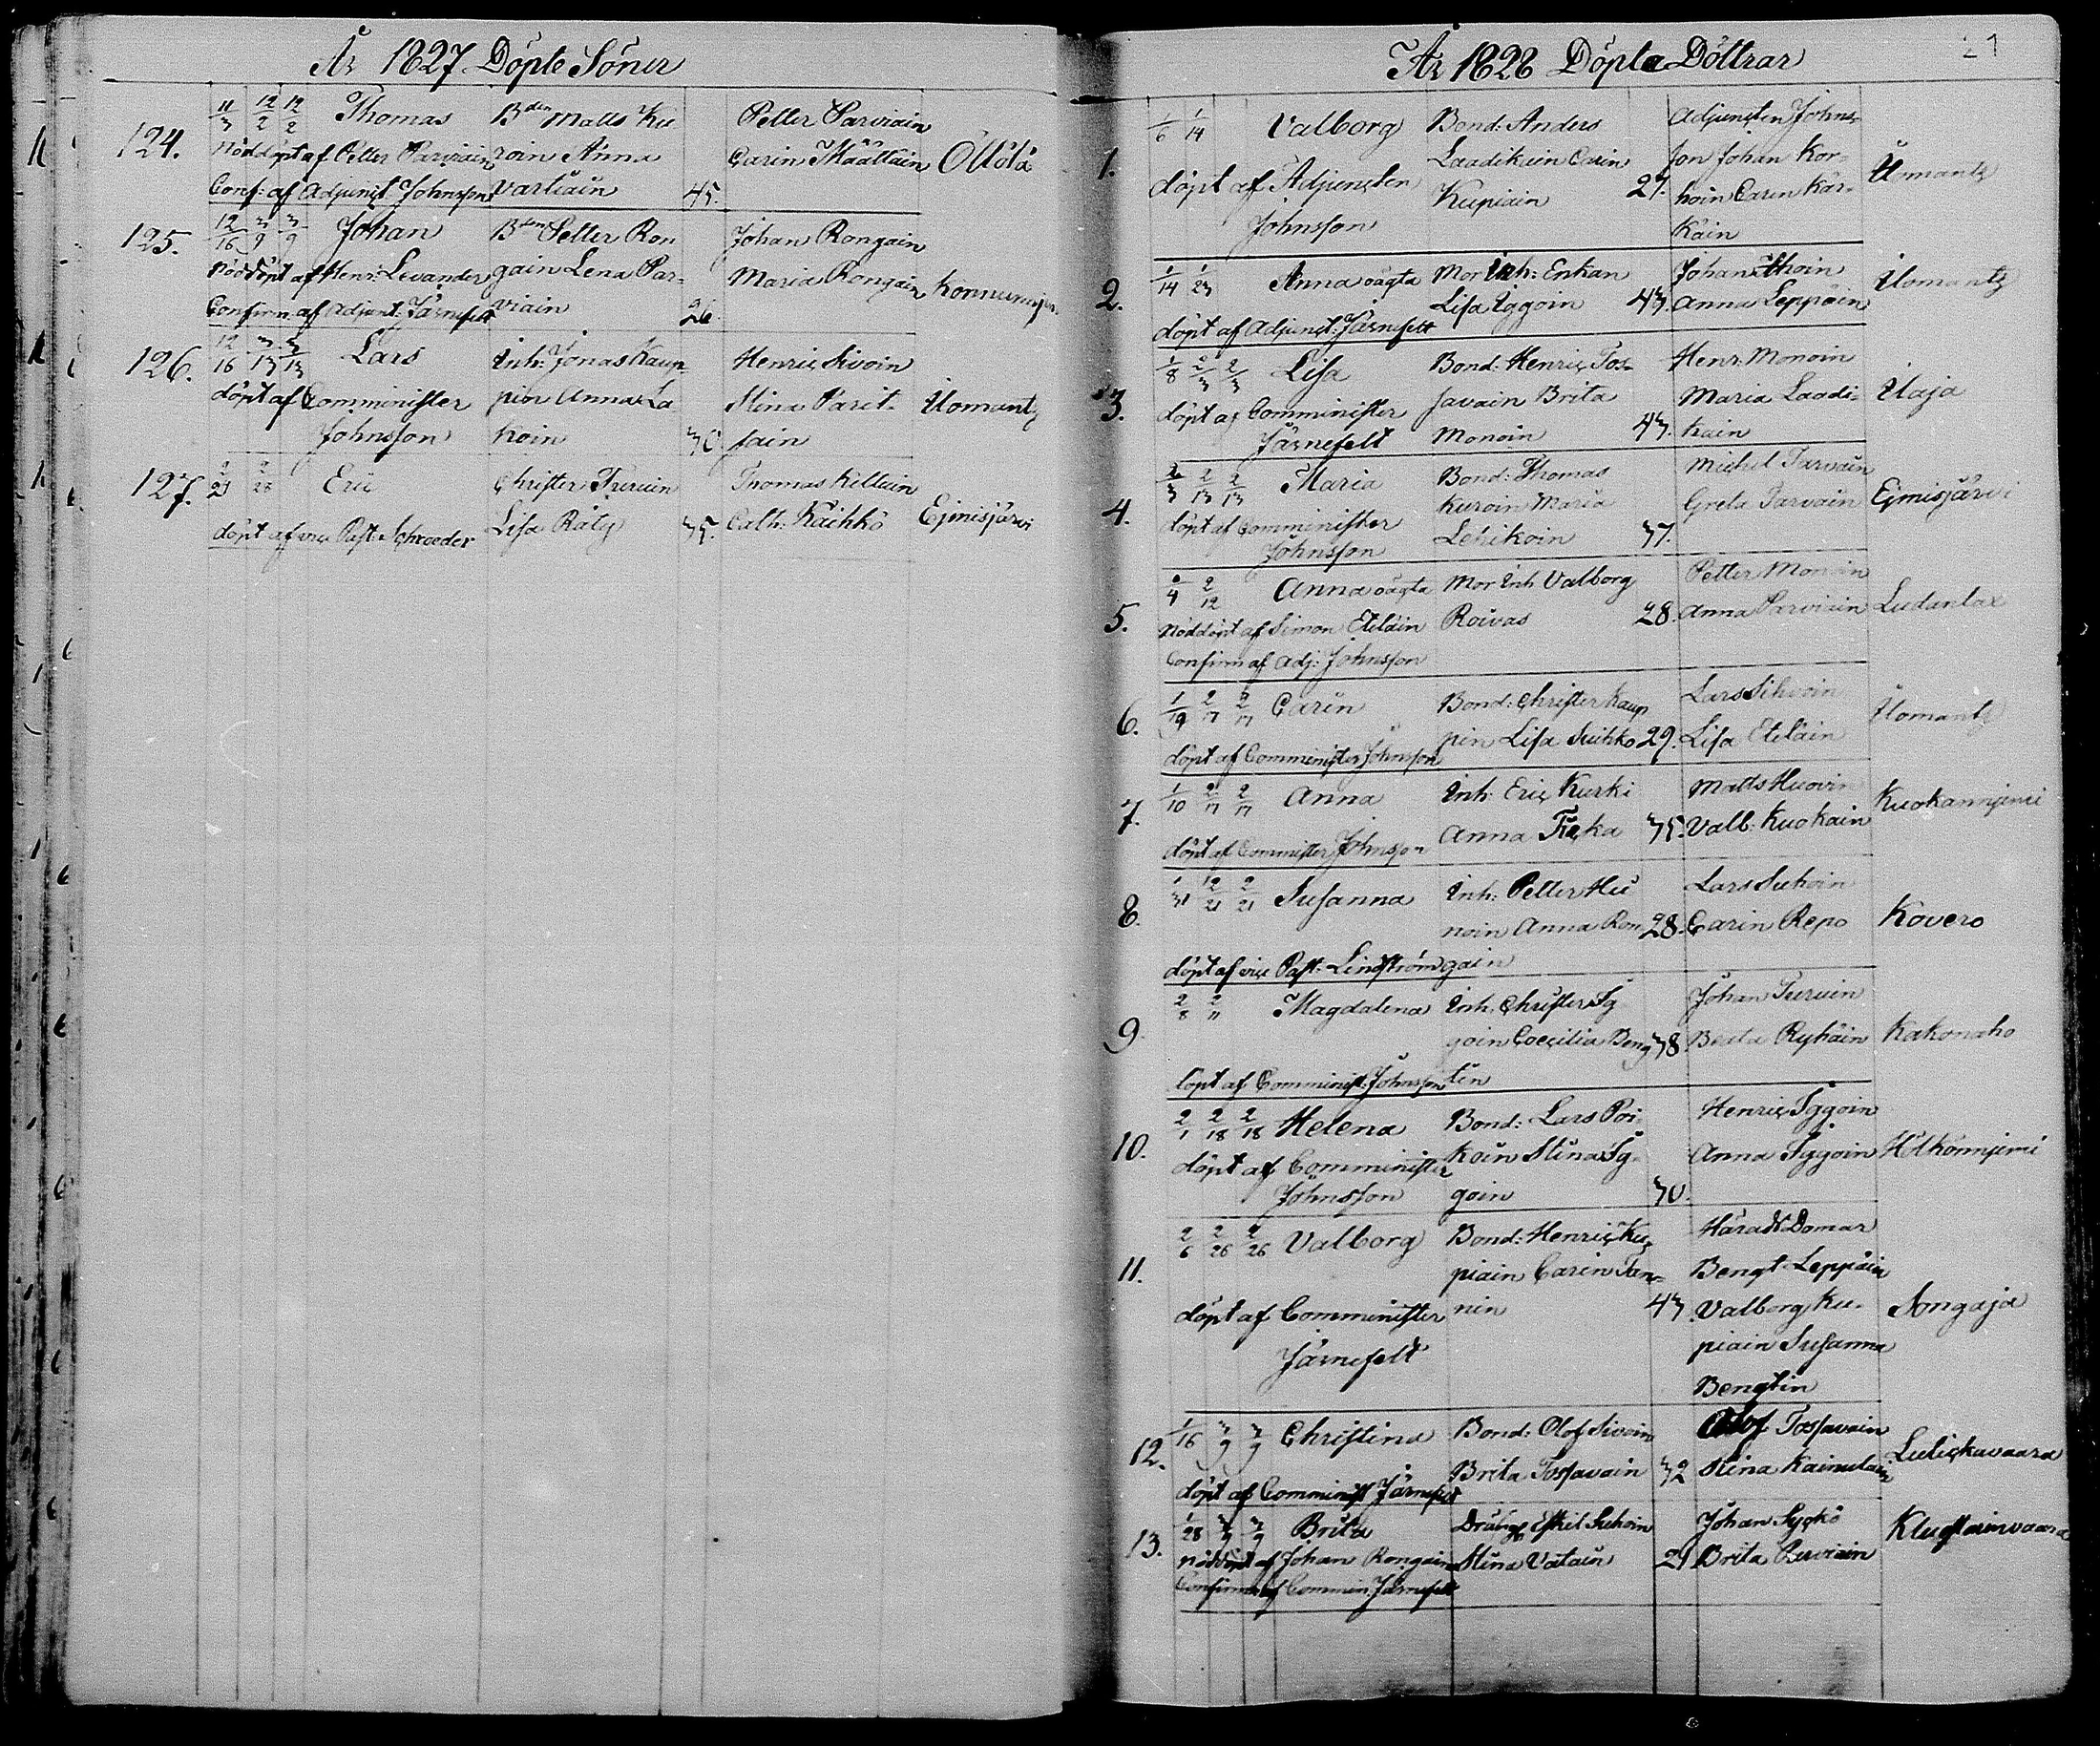 År 1827 Döpte Söner
124.
11/3 12/2 12/2 Thomas
Nöddöpt af Petter Parviain
Conf: af Adjunct Johnsson
Bden Matts Ku
roin Anna
Vartiain 45.
Petter Parviain
Carin Määttäin
Öllölä
125.
12/16 3/9 3/9 Johan
Nöddöpt af Henr: Levander
Confirm: af Adjunt: Järnefelt
Bden Petter Ron
gain Lena Par-
viain 26.
Johan Rongain
Maria Rongain
126.
12/16 3/13 3/13 Lars
döpt af Comminister
Johnsson
Inh: Jonas Kaup-
pin Anna La
koin 30
Henric Sivoin
Stina Parit-
sain
Ilomantz
127.
2/21 2/28 Eric
döpt af vice Past: Schroeder
Christer Turuin
Lisa Räty 35.
Thomas Kettuin
Cath: Käihkö
Ejmisjärvi
År 1828 Döpta Döttrar
21
1.
1/6 1/14 Valborg
döpt af Adjuncten
Johnsson
Bond: Anders
Laadikain Carin
Kupiain 27.
Adjuncten Johns-
son Johan Kor-
hoin Carin Kär-
käin
Ilomantz
2.
1/14 1/23 Anna oägta
döpt af Adjunct: Järnefelt
Mor Inh: Enkan
Lisa Iggoin 43.
Johan Ihoin
Anna Leppäin
Ilomantz
3.
1/8 2/3 2/3 Lisa
döpt af Comminister
Järnefelt
Bond: Henric Tos-
savain Brita
Monoin 43.
Henr: Monoin
Maria Laadi-
kain
Ilaja
4.
2/3 2/13 2/13 Maria
döpt af Comminister
Johnsson
Bond: Thomas
Kuroin Maria
Lehikoin 37.
Michel Tarvain
Greta Tarvain
Ejmisjärvi
5.
2/4 2/12 Anna oägta
Nöddöpt af Simon Eteläin
Confirm af Adj: Johnsson
Mor Inh Valborg
Roivas 28.
Petter Monoin
Anna Parviain
Ludanlax
6.
1/19 2/17 2/17 Carin
döpt af Comminister Johnsson
Bond: Christer Kaup
pin Lisa Suihko 29.
Lars Sihvoin
Lisa Eteläin
Ilomantz
7.
1/10 2/17 2/17 Anna
döpt af Comminister Johnsson
Inh: Eric Kurki
Anna 35.
Matts Huovin
Valb: Kuokain
Kuokannjemi
8.
1/31 2/21 2/21 Susanna
döpt af vice Past: Lindström
Inh: Petter Hu
noin Anna Ron
gain 28.
Lars Suhoin
Carin Repo
Kovero
9.
2/8 2/11 Magdalena
döpt af Comminist: Johnsson
Inh: Christer Ig
goin Coecilia Beng
tin 38
Johan Turuin
Beata Ryhäin
Kakonaho
10.
2/1 2/18 2/18 Helena
döpt af Comminister
Johnsson
Bond: Lars Poi-
koin Stina Ig-
goin 30.
Henric Iggoin
Anna Iggoin
Hölkönnjemi
11.
2/6 2/26 2/26 Valborg
döpt af Comminister
Järnefelt
Bond: Henric Ku
piain Carin Tan-
nin 43.
Härads Domar
Bengt Leppäin
Valborg Ku-
piain Susanna
Bengtin
Songaja
12.
1/16 3/9 3/9 Christina
döpt af Comminist Järnefelt
Bond: Olof Sivoin
Brita Tossavain 32
Olof Tossavain
Stina Kainulain
Lutickavaara
13.
1/28 3/9 3/9 Brita
Nöddöpt af Johan Rongain
Confirm af Commin: Järnefelt
Dräng Eskil Suhoin
Stina Vätäin 21
Johan Syckö
Brita